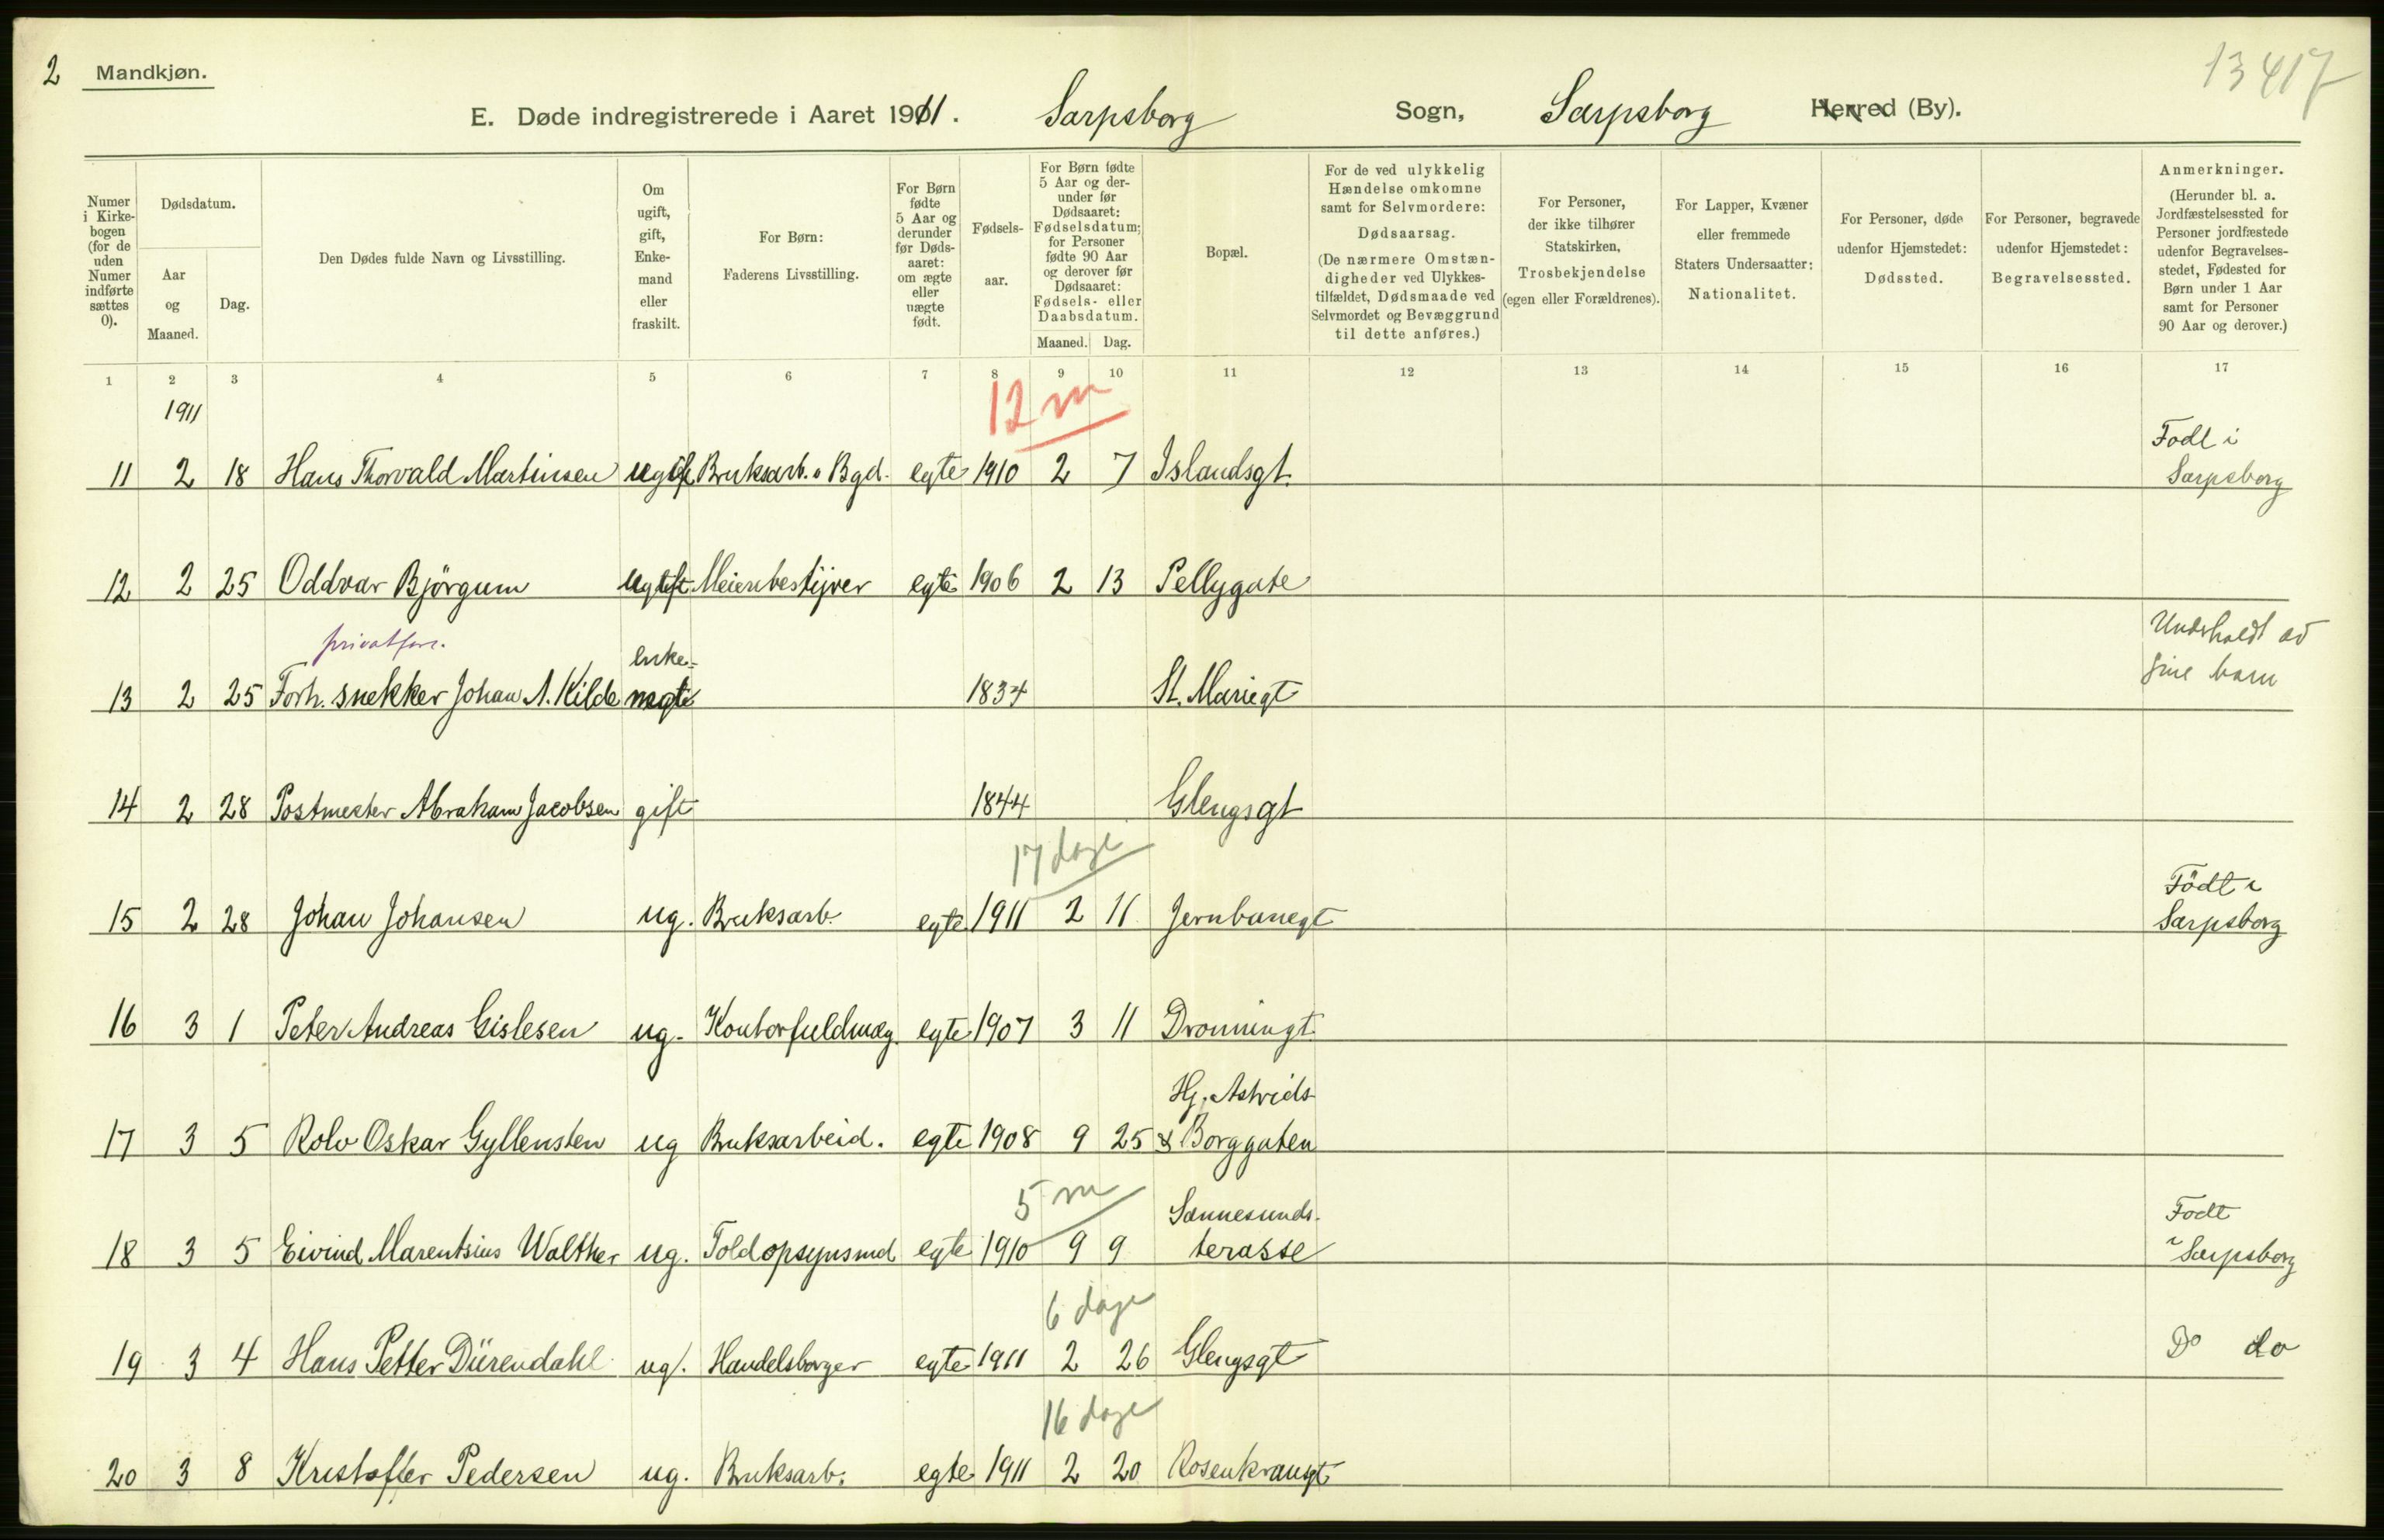 2 Mandkjøn.
13417
E. Døde indregistrerede i Aaret 1911. Sarpsborg Sogn, Sarpsborg Herred (By).
Numer i Kirkebogen (for de uden Numer indførte sættes 0).
Dødsdatum.
Aar og Maaned.
Dag.
Den Dødes fulde Navn og Livsstilling.
Om ugift, gift, Enkemand eller fraskilt.
For Børn: Faderens Livsstilling.
For Børn fødte 5 Aar og derunder før Dødsaaret: om ægte eller uægte født.
Fødselsaar.
For Børn fødte 5 Aar og derunder før Dødsaaret: Fødselsdatum; for Personer fødte 90 Aar og derover før Dødsaaret: Fødsels- eller Daabsdatum.
Maaned. Dag.
Bopæl.
For de ved ulykkelig Hændelse omkomne samt for Selvmordere: Dødsaarsag. (De nærmere Omstændigheder ved Ulykkestilfældet, Dødsmaade ved Selvmordet og Bevæggrund til dette anføres.)
For Personer, der ikke tilhører Statskirken, Trosbekjendelse (egen eller Forældrenes).
For Lapper, Kvæner eller fremmede Staters Undersaatter: Nationalitet.
For Personer, døde udenfor Hjemstedet: Dødssted.
For Personer, begravede udenfor Hjemstedet: Begravelsessted.
Anmerkninger. (Herunder bl. a. Jordfæstelsessted for Personer jordfæstede udenfor Begravelsesstedet, Fødested for Børn under 1 Aar samt for Personer 90 Aar og derover.)
1 2 3 4 5 6 7 8 9 10 11 12 13 14 15 16 17
1911
12 m
11 2 18 Hans Thorvald Martinsen ugift Bruksarb. Bgd. egte 1910 2 7 Islandsgt. Født i Sarpsborg
12 2 25 Oddvar Björgum ugift Meieribestyrer egte 1906 2 13 Pellygate
privatfors.
13 2 25 Forh. snekker Johan A. Kilde enke- 1834 St. Mariegt Underholdt av sine barn
14 2 28 Postmester Abraham Jacobsen gift 1844 Glengsgt
17 dage
15 2 28 Johan Johansen ug. Bruksarb. egte 1911 2 11 Jernbanegt Födt i Sarpsborg
16 3 1 Peter Andreas Gislesen ug. Kontorfuldmæg. egte 1907 3 11 Dronningt.
17 3 5 Rolv Oskar Gyllensten ug Bruksarbeid. egte 1908 9 25 Hj. Astrids & Borggaten
5 m
18 3 5 Eivind Marentsius Walther ug. Toldopsynsmd egte 1910 9 9 Sannesunds. terasse Født i Sarpsborg
6 dage
19 3 4 Hans Petter Dürendahl ug. Handelsborger egte 1911 2 26 Glengsgt Do do
16 dage
20 3 8 Kristoffer Pedersen ug. Bruksarb. egte 1911 2 20 Rosenkransgt